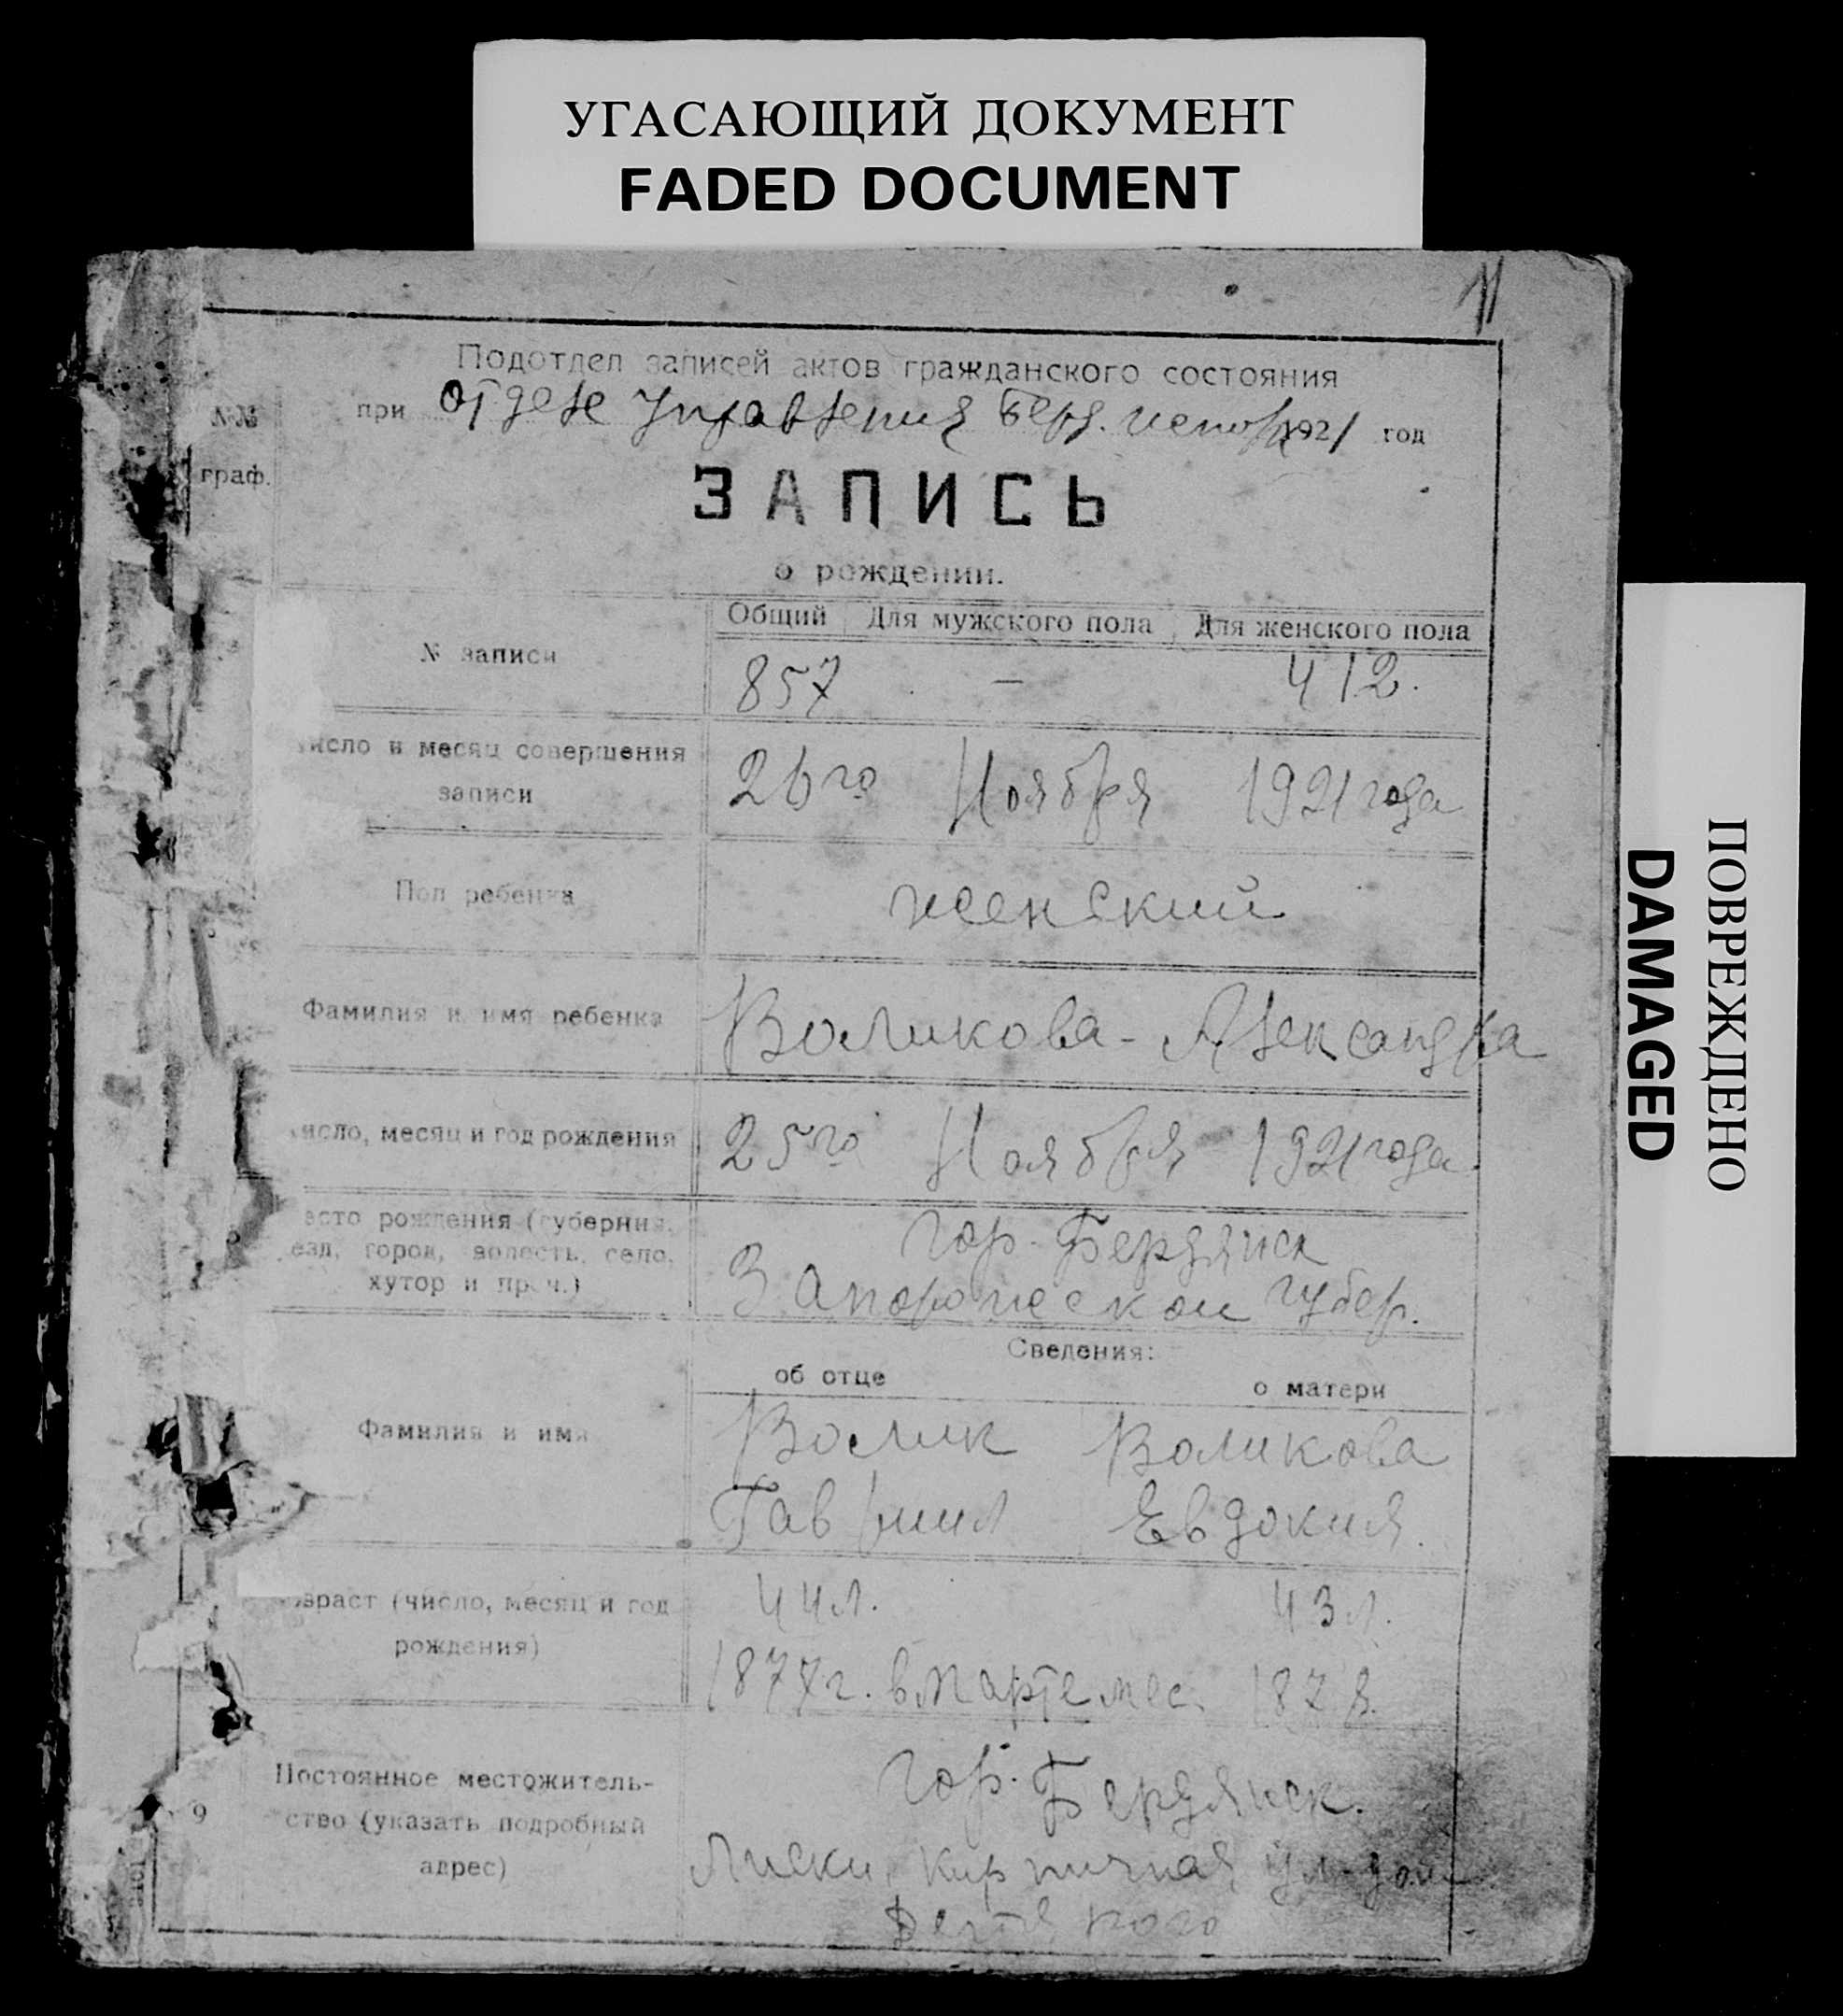 УГАСАЮЩИЙ ДОКУМЕНТ
FADED DOCUMENT
11
Подотдел записей актов гражданского состояния
№№
граф.
при отделе Управления Берд. исполк 1921 год
ЗАПИСЬ
о рождении.
№ записи
Общий Для мужского пола Для женского пола
857 — 412.
исло и месяц совершения
записи
26го Ноября 1921 года
Пол ребенка
женский
Фамилия и имя ребенка
Воликова - Александра
исло, месяц и год рождения
25го Ноября 1921 года
есто рождения (губерния,
езд, город, волость, село,
хутор и проч.)
гор. Бердянск
Запорожской губер.
Сведения:
об отце о матери
Фамилия и имя
Волик Воликова
Гавриил Евдокия.
зраст (число, месяц и год
рождения)
44 л. 43 л.
1877 г. в Марте мес. 1878.
9
Постоянное местожитель-
ство (указать подробный
адрес)
гор. Бердянск.
Лиски, Кирпичная ул. дом
ПОВРЕЖДЕНО
DAMAGED